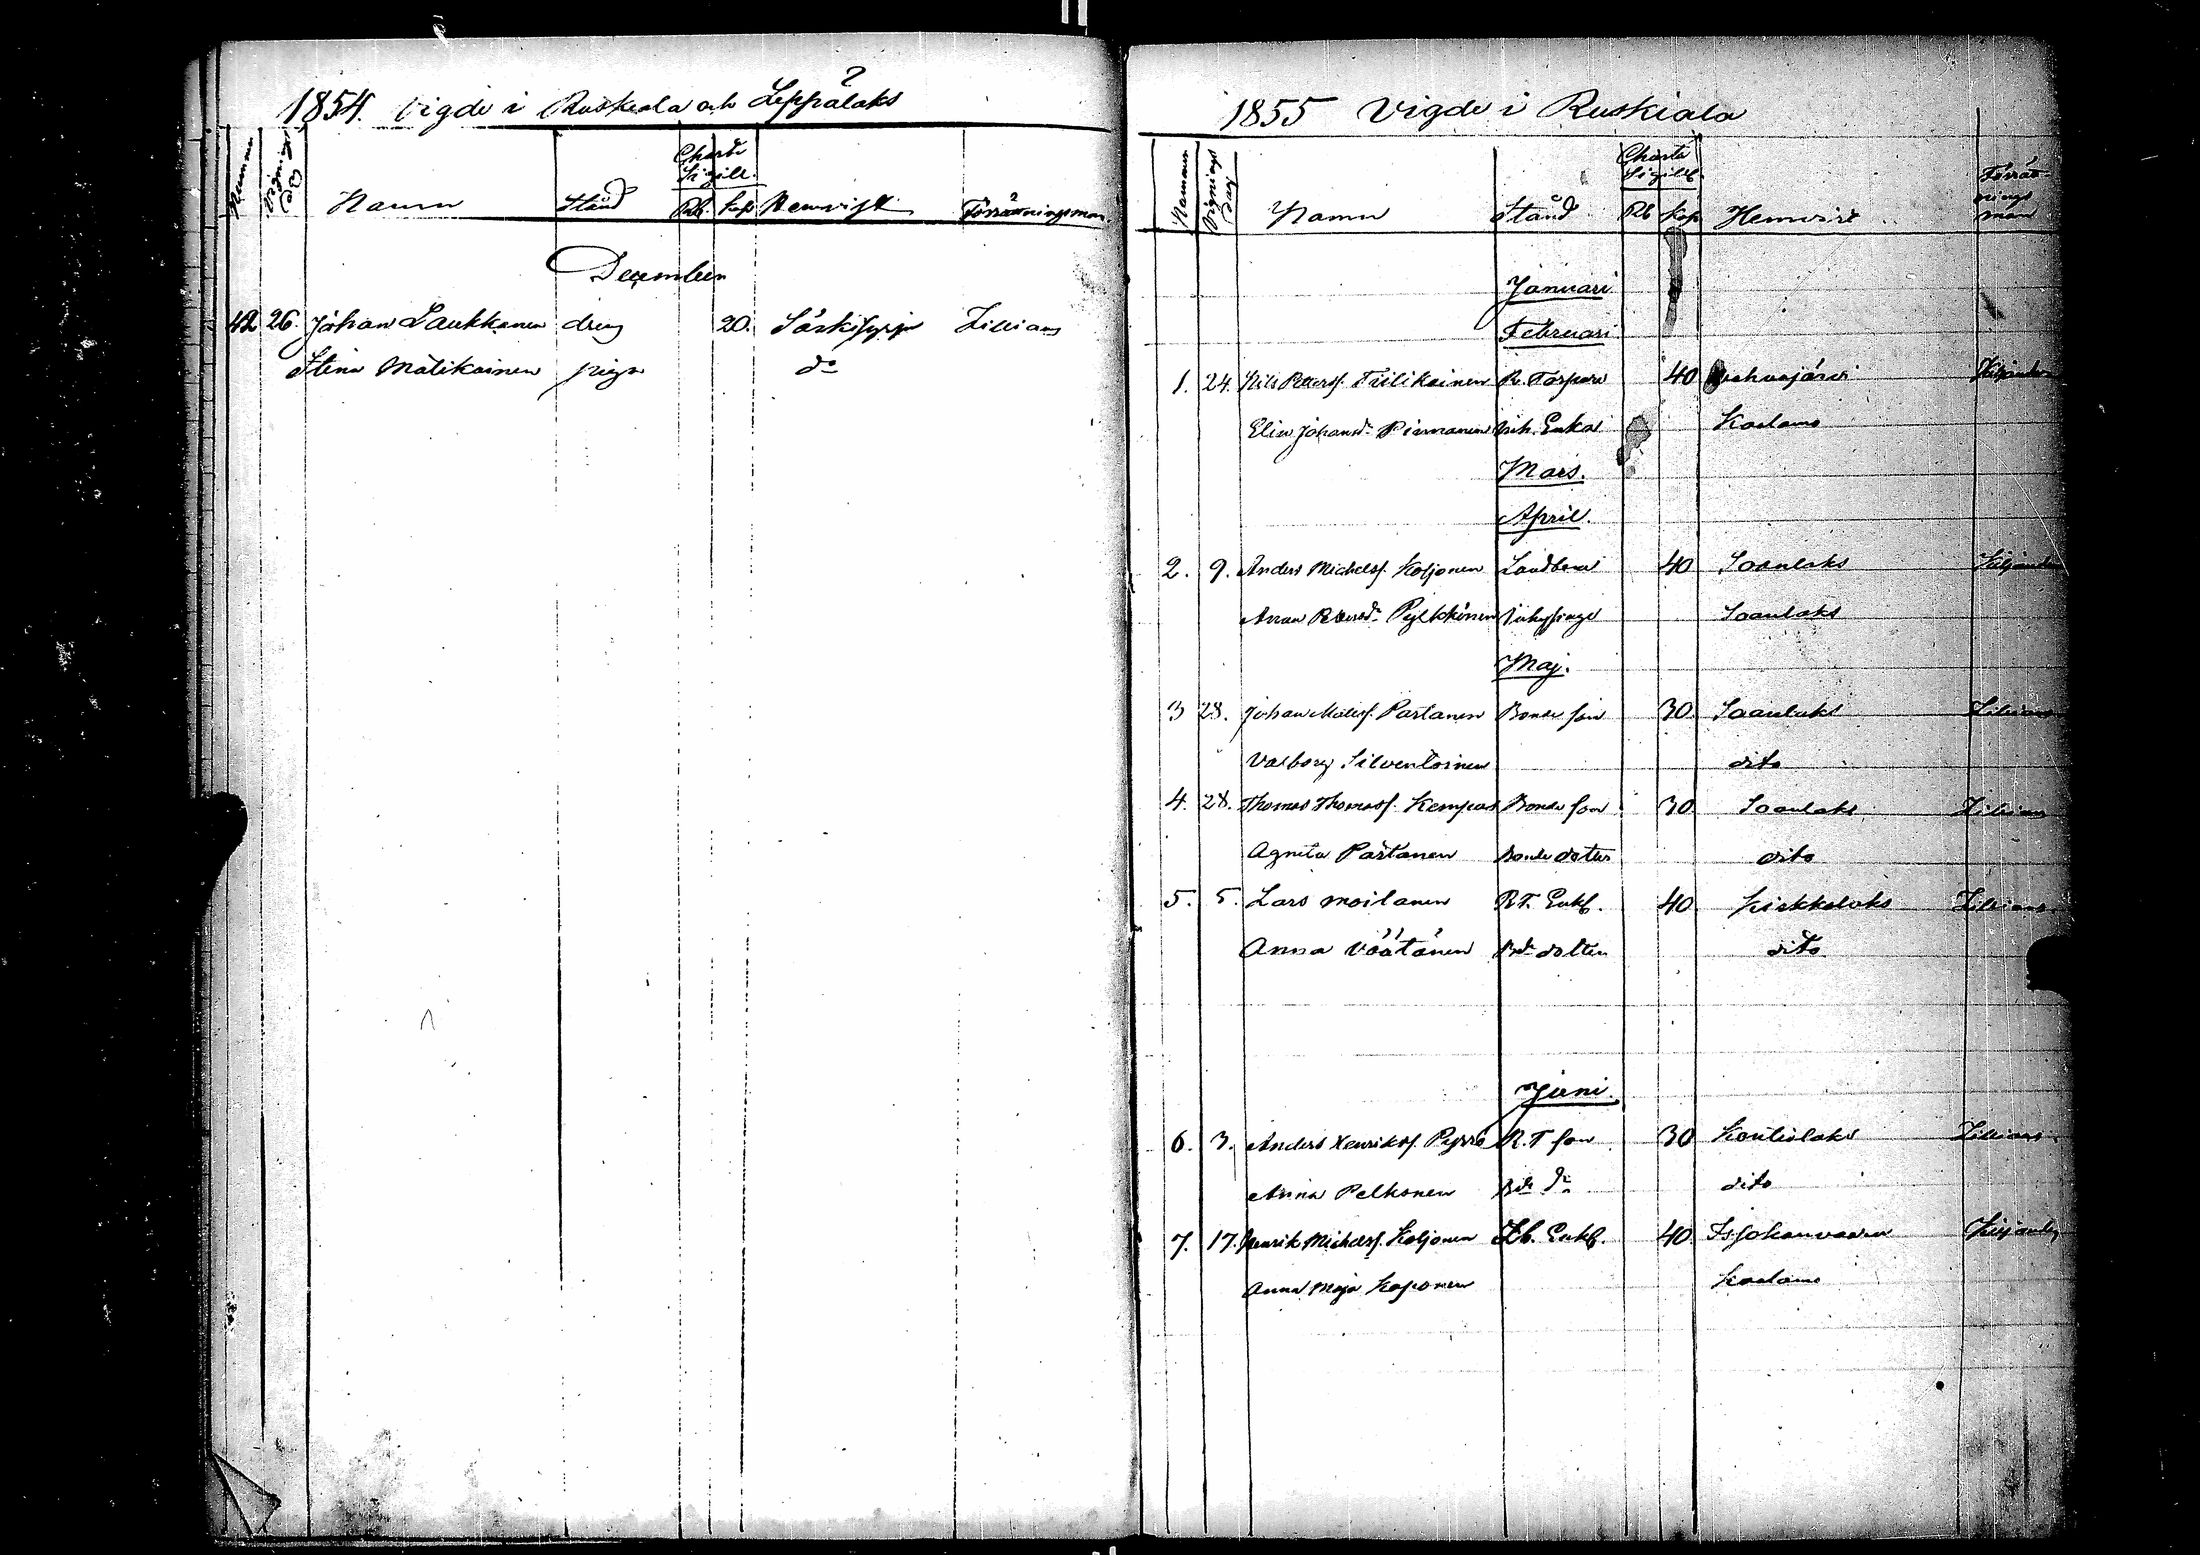 1854. Vigde i Ruskeala och Leppälaks
Nummer Vignings dag Namn Stånd Charta Sigill. Rub. Kop Hemvist Förrättningsman
December
42 26. Johan Laukkanen dreng 20. Särkisyrjä Lilius
Stina Matikainen piga do
1855 Vigde i Ruskiala
Nummer Vignings dag Namn Stånd Charta Sigill. Rb Kop Hemvist Förrättnings man
Januari
Februari
1. 24. Nils Petersf. Tiilikainen R. Torpare 40
Elin Johansdr Pirinanen Enka Kaalamo
Mars.
April.
2. 9. Anders Michelsf. Koljonen Landbonde 40 Soanlaks Kiljander
Anna Petersdr Pylkkänen Inhysinge Soanlaks
Maj.
3 28. Johan Matsf. Partanen Bonde son 30. Soanlaks
Valborg Silventoinen dito
4. 28. Thomas Thomasf. Kemppas Bonde son 30 Soanlaks
Agneta Partanen Bonde dotter dito
5. 5. Lars Moilanen R.T. Enkl. 40 Kirkkolaks
Anna Väätänen Bde dotter dito
Juni.
6. 3. Anders Henriksf. Pyrrö R.T son 30 Kontiolaks
Anna Pelkonen Bde do dito
7. 17. Henrik Michelsf. Koljonen Lb. Enkl. 40 Kiljander
Anna Maja Koponen Kaalamo